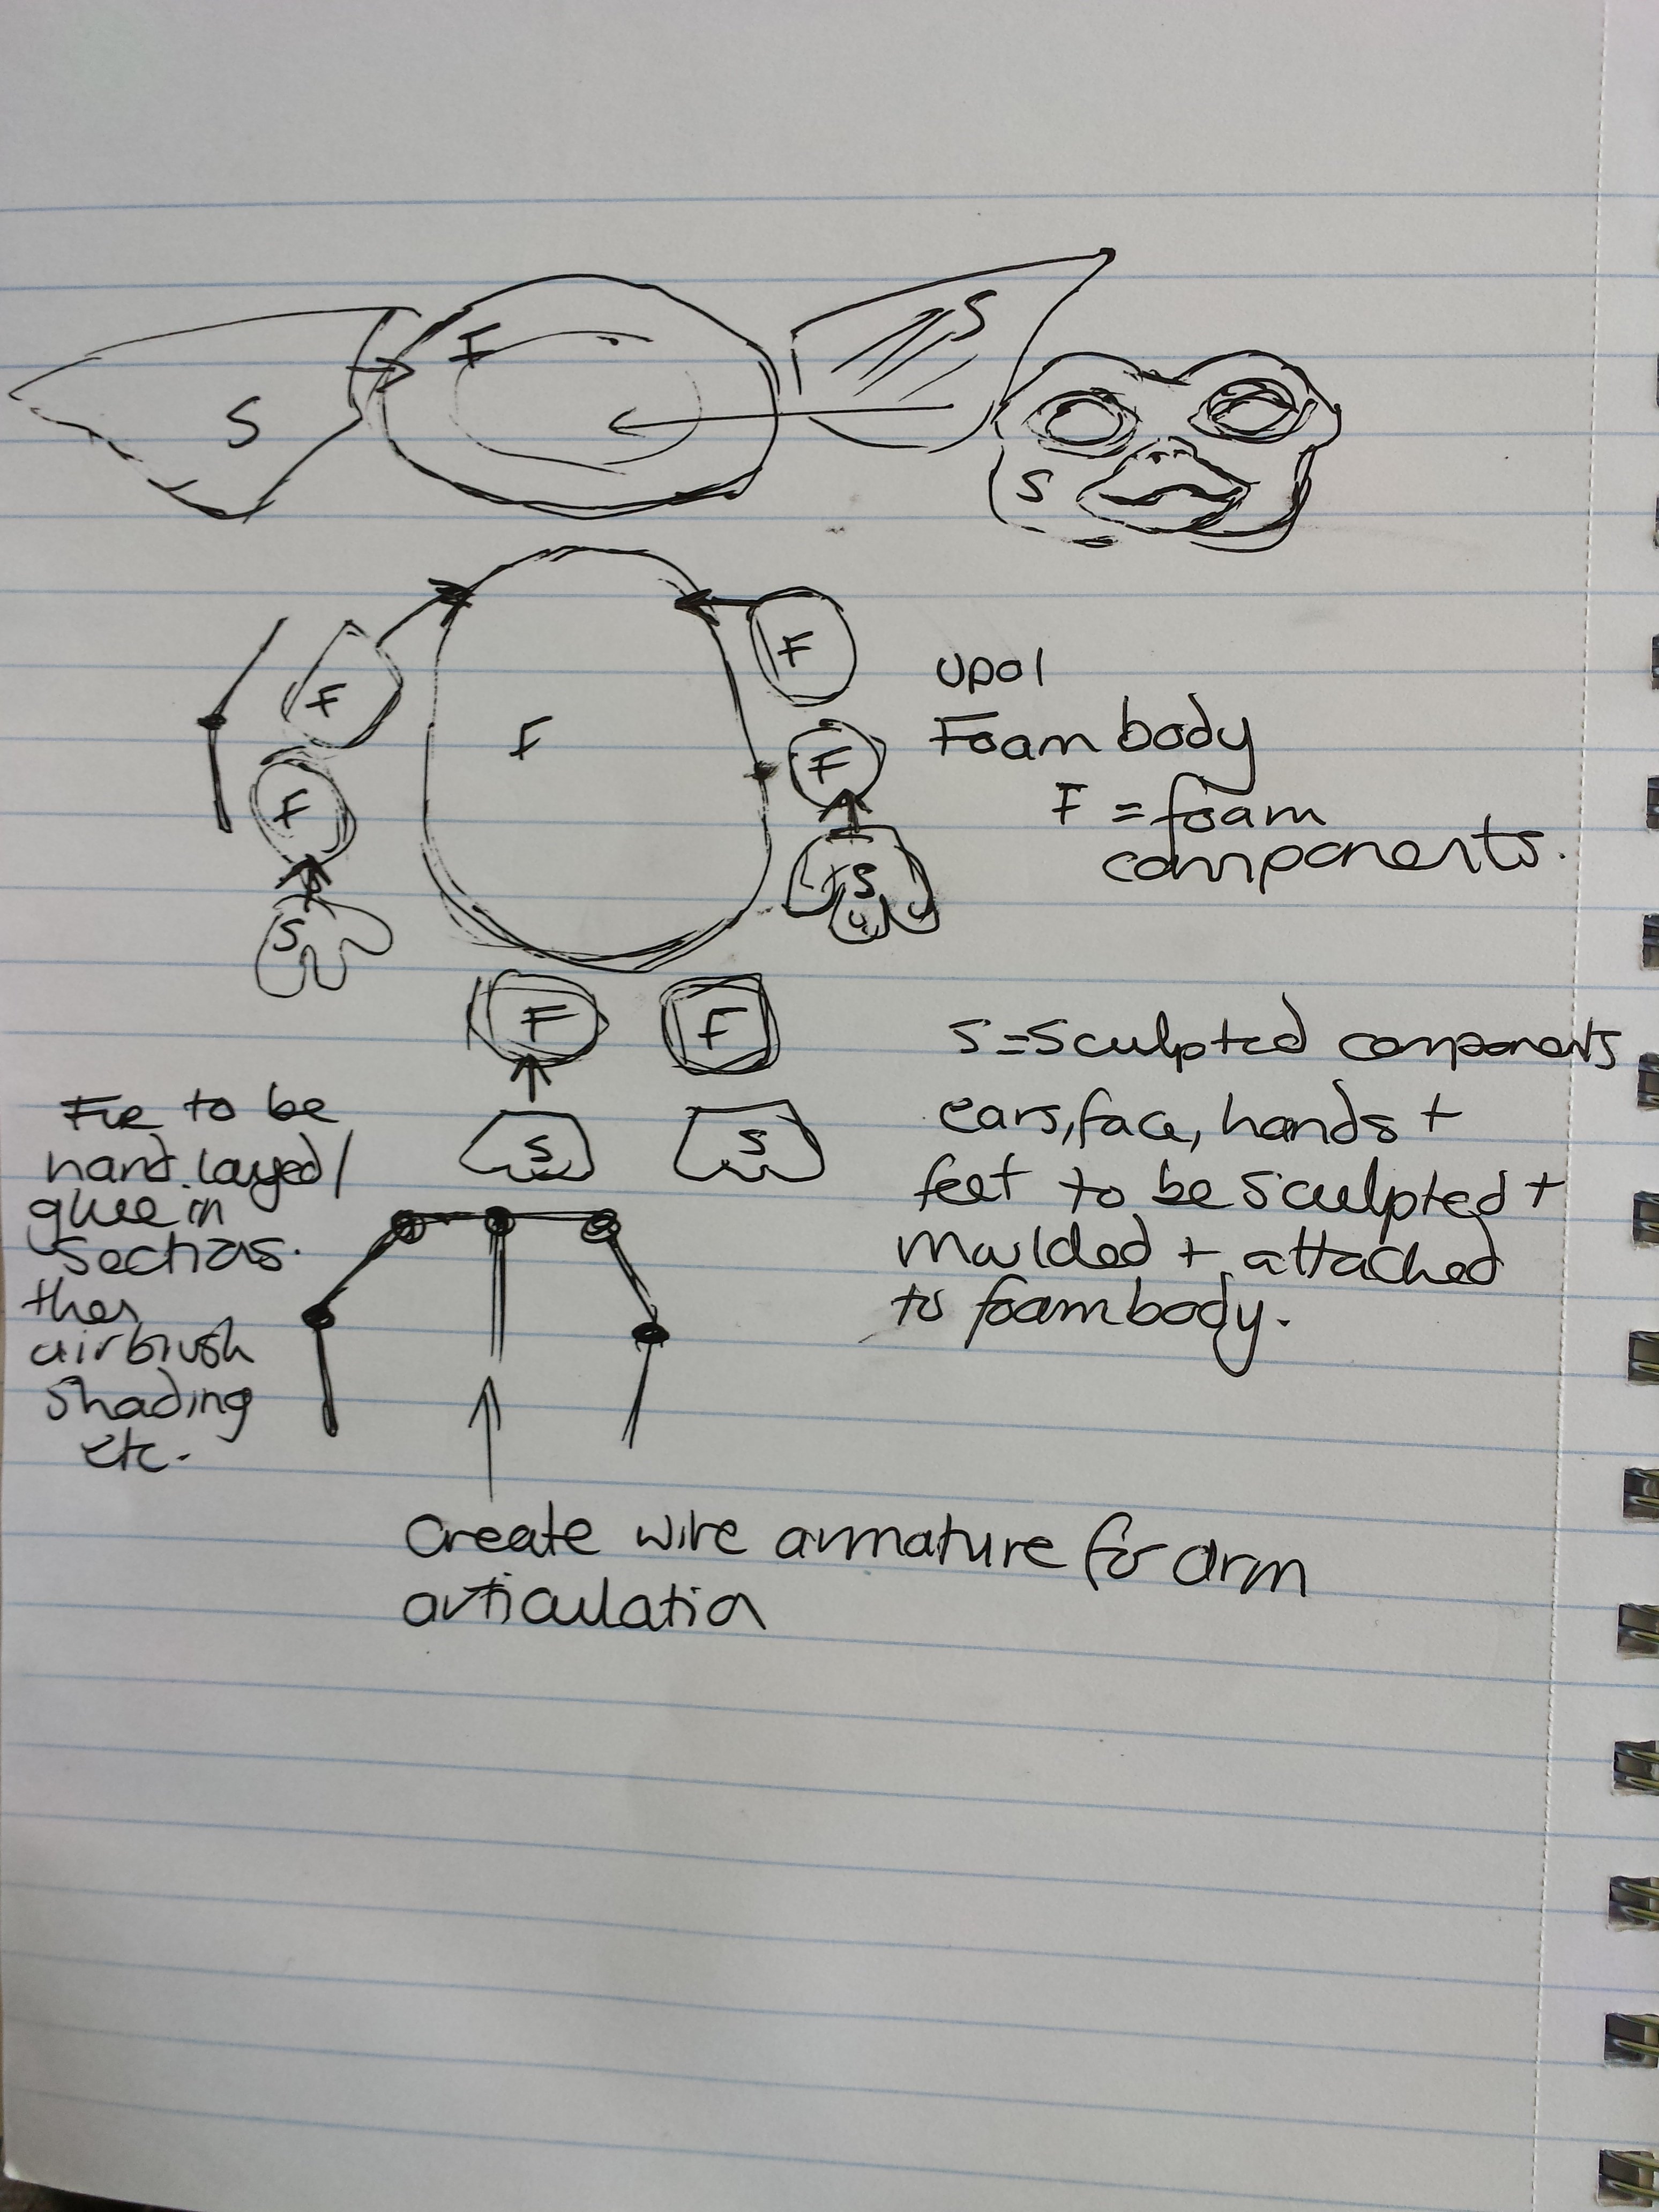 F
S
S
S
F
F
F
F
F
S
S
F
F
S
S
upol
Foam body
F = foam
components.
S = Sculpted components
ears, face, hands +
feet to be sculpted +
moulded + attached
to foam body.
Fur to be
hand layed/
glue in
sections.
then
airbrush
shading
etc.
Create wire armature for arm
articulation